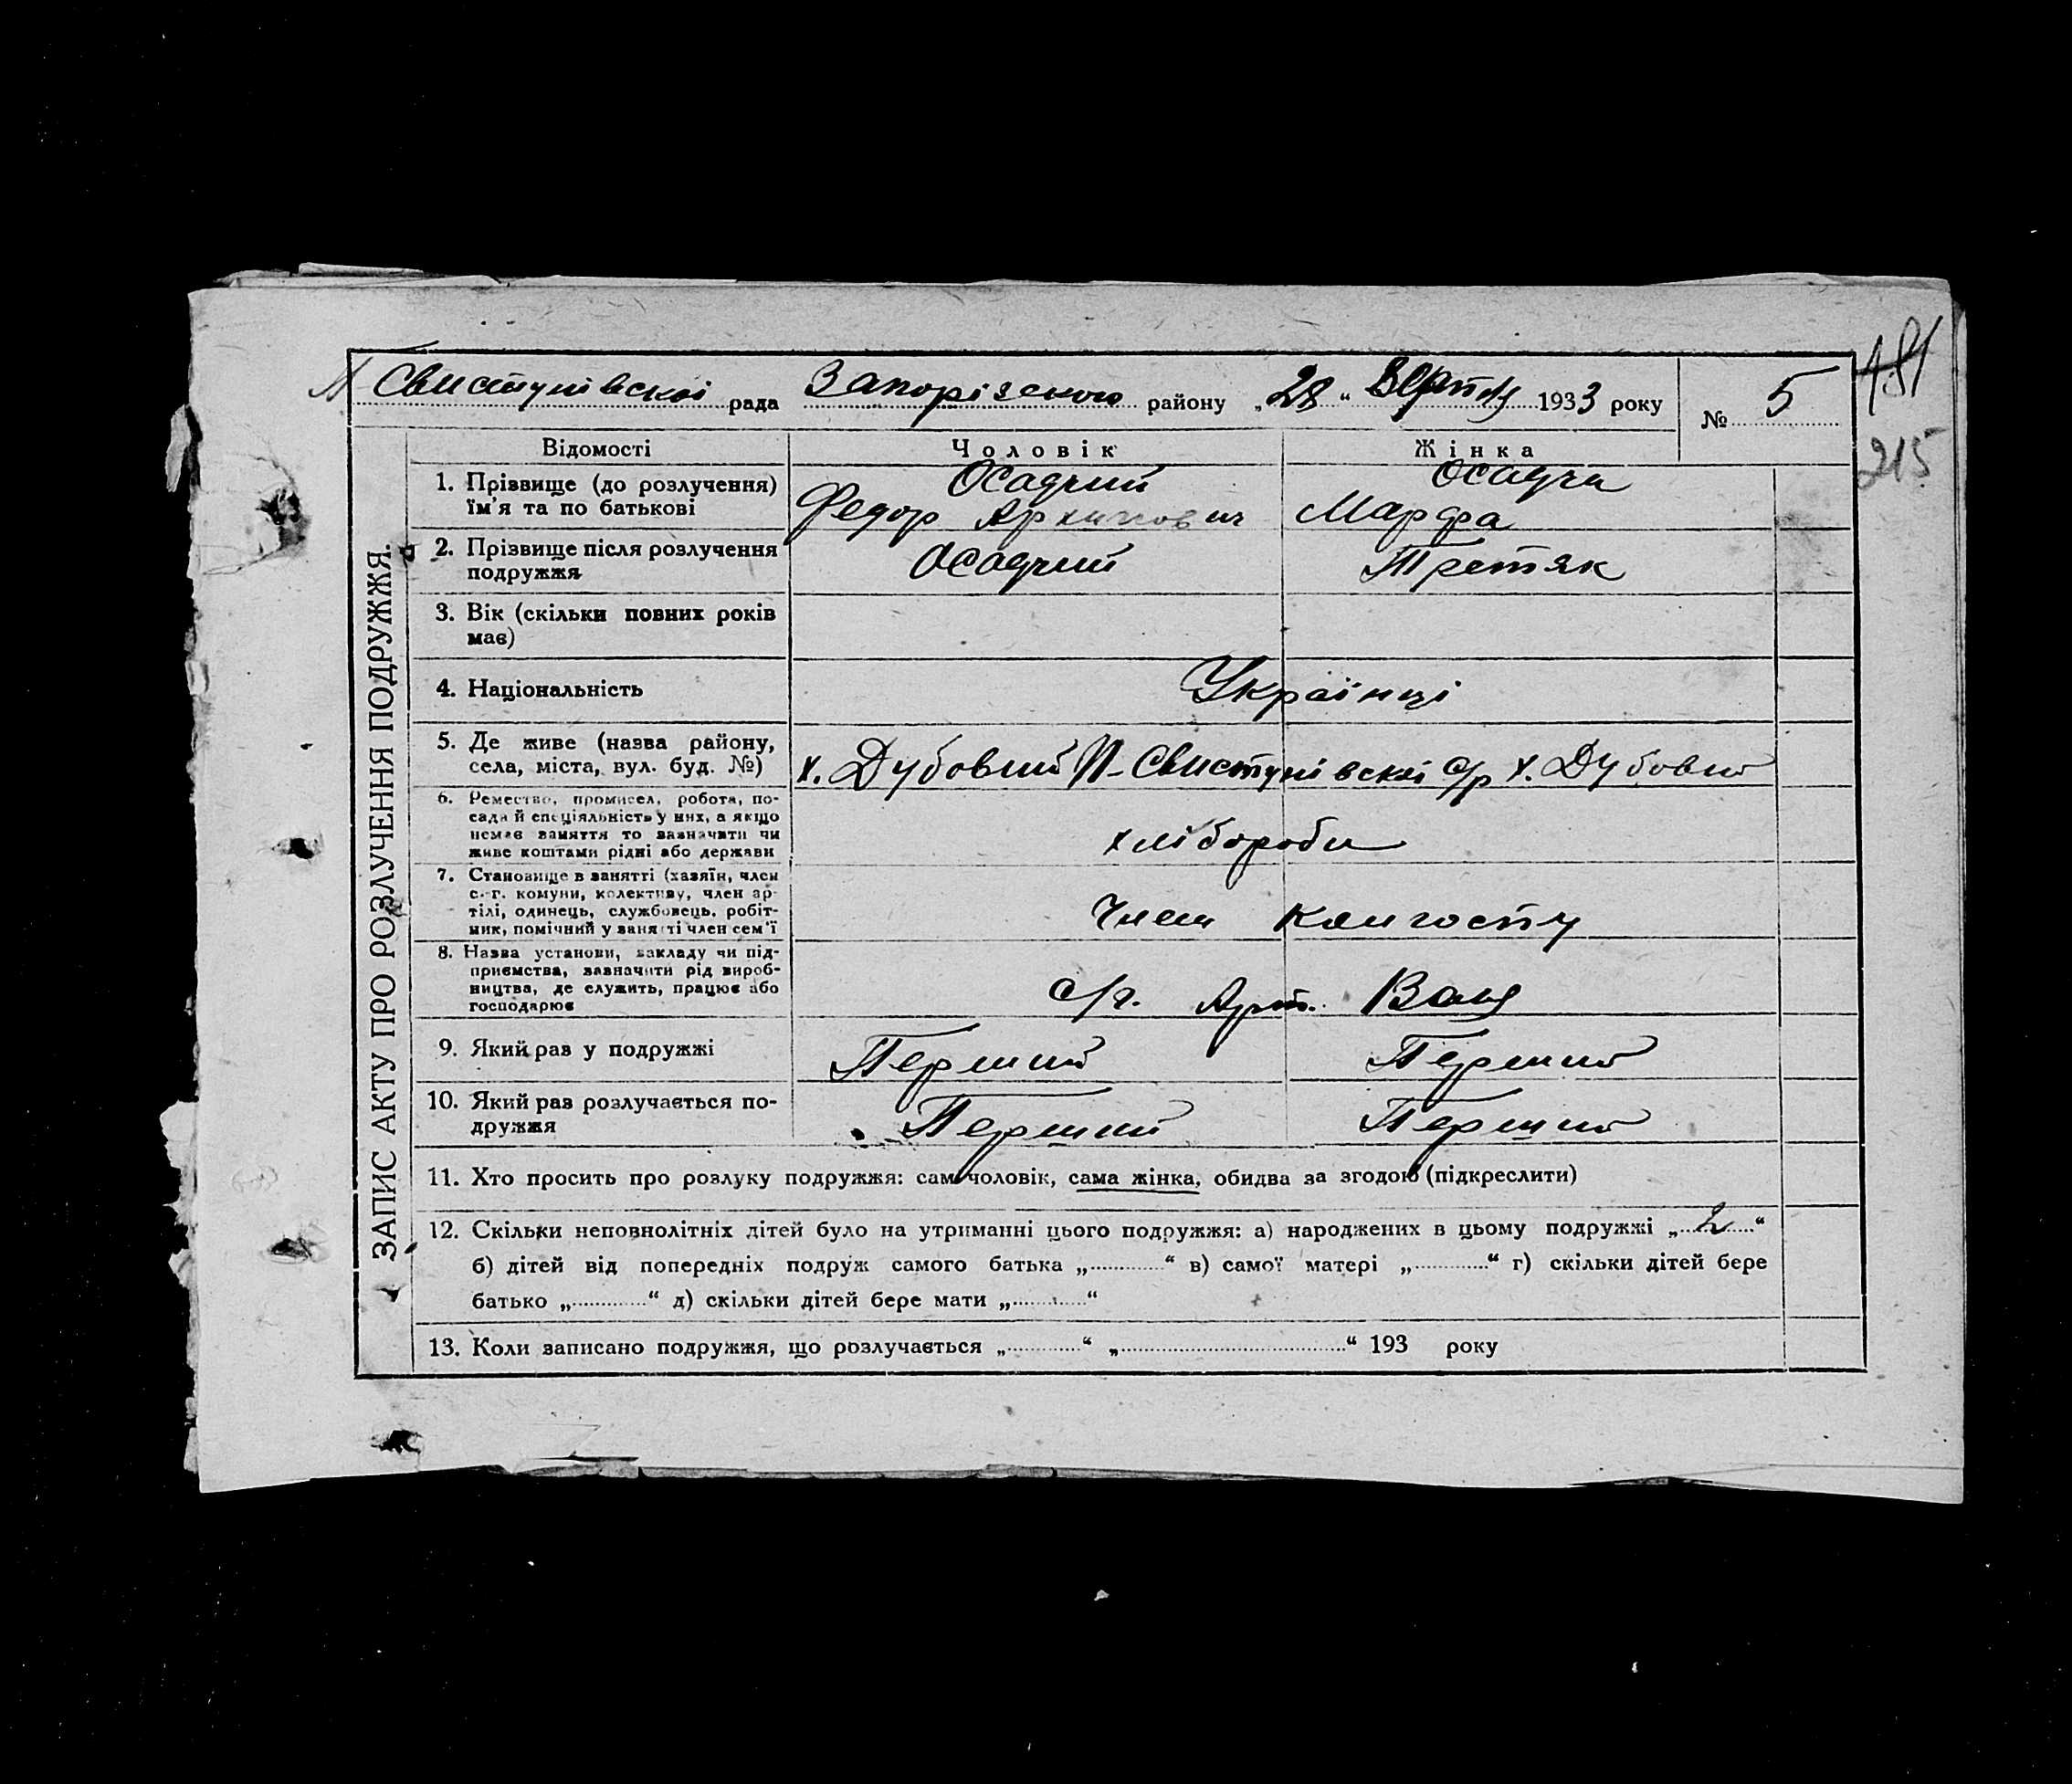 Л Свистунівскої рада Запорізского району „28“ Вєрпня 1933 року № 5
181
215
ЗАПИС АКТУ ПРО РОЗЛУЧЕННЯ ПОДРУЖЖЯ.
Відомості Чоловік Жінка
1. Прізвище (до розлучення) Осадчий Осадча
їм'я та по батькові Федор Архипович Марфа
2. Прізвище після розлучення Осадчий Третяк
подружжя
3. Вік (скільки повних років
має)
4. Національність Українці
5. Де живе (назва району,
села, міста, вул. буд. №) х. Дубовий Л-Свистунівскої с/р х. Дубовий
6. Ремество, промисел, робота, по-
сада й спеціяльність у них, а якщо
немає заняття то зазначити чи
живе коштами рідні або держави хлібороби
7. Становище в занятті (хазяїн, член
с.-г. комуни, колективу, член ар-
тілі, одинець, службовець, робіт-
ник, помічний у занятті член сем'ї Член Колгоспу
8. Назва установи, закладу чи під-
приємства, зазначити рід вироб-
ництва, де служить, працює або
господарює с/г. Арт.
9. Який раз у подружжі Перший Перший
10. Який раз розлучається по-
дружжя Перший Перший
11. Хто просить про розлуку подружжя: сам чоловік, сама жінка, обидва за згодою (підкреслити)
12. Скільки неповнолітніх дітей було на утриманні цього подружжя: а) народжених в цьому подружжі „2“
б) дітей від попередніх подруж самого батька „............“ в) самої матері „............“ г) скільки дітей бере
батько „............“ д) скільки дітей бере мати „............“
13. Коли записано подружжя, що розлучається „............“ „............“ 193 року